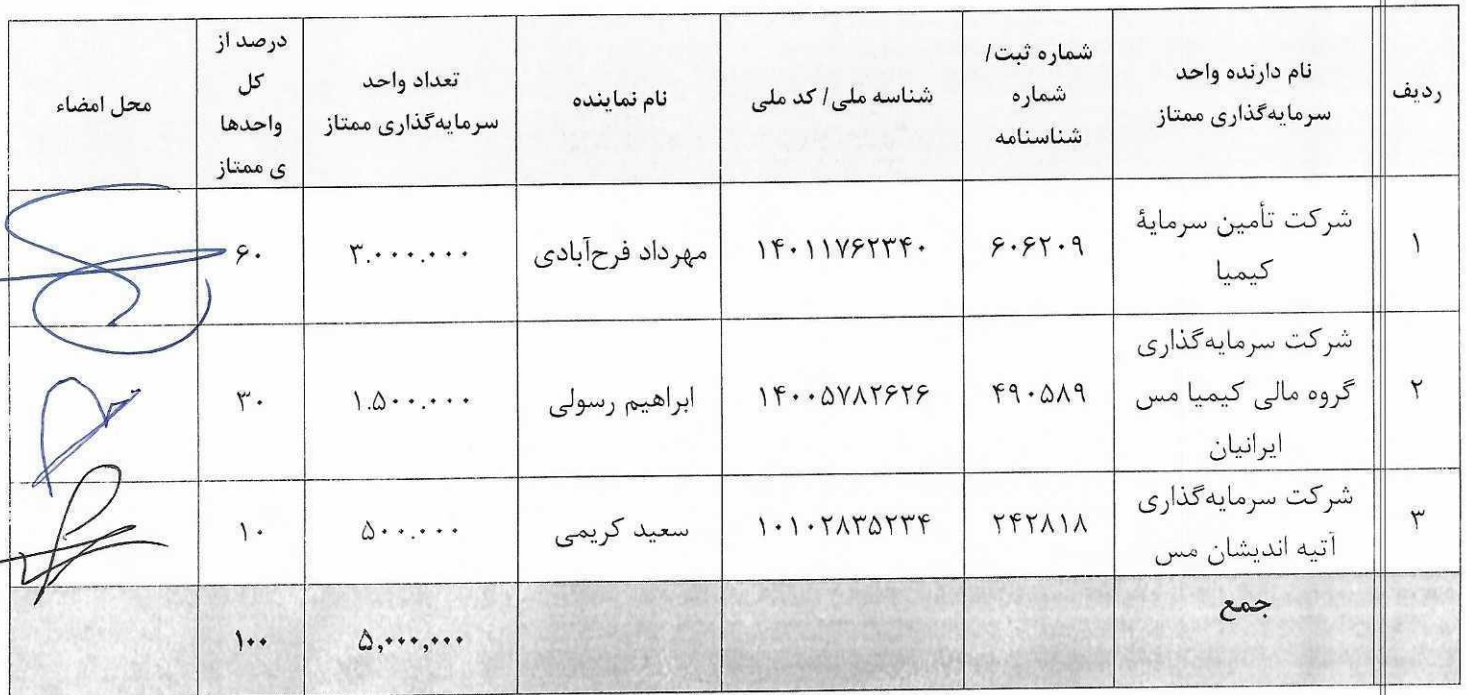 ردیف
نام دارنده واحد
سرمایه‌گذاری ممتاز
شماره ثبت/
شماره
شناسنامه
شناسه ملی/ کد ملی
نام نماینده
تعداد واحد
سرمایه‌گذاری ممتاز
درصد از
کل
واحدها
ی ممتاز
محل امضاء
۱
شرکت تأمین سرمایهٔ
کیمیا
۶۰۶۲۰۹
۱۴۰۱۱۷۶۲۳۴۰
مهرداد فرح‌آبادی
۳.۰۰۰.۰۰۰
۶۰
۲
شرکت سرمایه‌گذاری
گروه مالی کیمیا مس
ایرانیان
۴۹۰۵۸۹
۱۴۰۰۵۷۸۲۶۲۶
ابراهیم رسولی
۱.۵۰۰.۰۰۰
۳۰
۳
شرکت سرمایه‌گذاری
آتیه اندیشان مس
۲۴۲۸۱۸
۱۰۱۰۲۸۳۵۲۳۴
سعید کریمی
۵۰۰.۰۰۰
۱۰
جمع
۵,۰۰۰,۰۰۰
۱۰۰